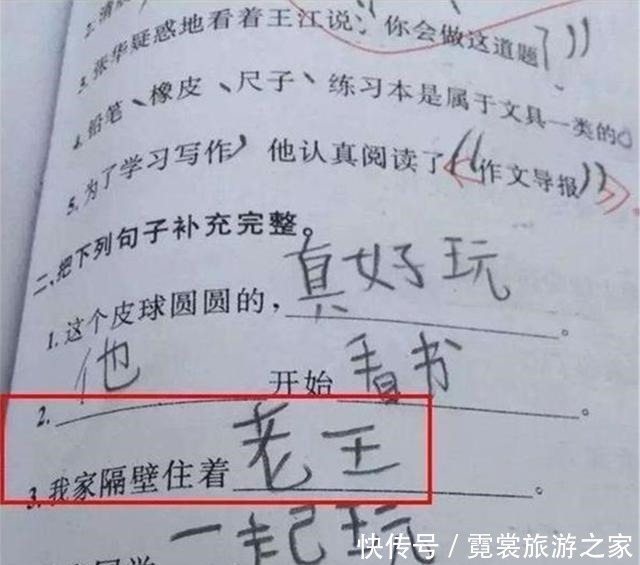 3.张华疑惑地看着王江说:“你会做这道题?”
4.铅笔、橡皮、尺子、练习本是属于文具一类的。
5.为了学习写作,他认真阅读了“作文导报”
二、把下列句子补充完整。
1.这个皮球圆圆的,真好玩。
2.他开始看书。
3.我家隔壁住着老王。
一起玩
快传号/霓裳旅游之家